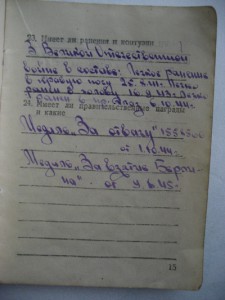 23. Имеет ли ранения и контузии
В Великой Отечественной
войне в составе. Легкое ранение
в правую ногу 25.
ранен в голову 10.9.43.
ранен в 6.10.44.
24. Имеет ли правительственные награды
и какие
Медаль „За отвагу"
от 1.10.44.
Медаль „За взятие Берли-
на" от 9.6.45.
15